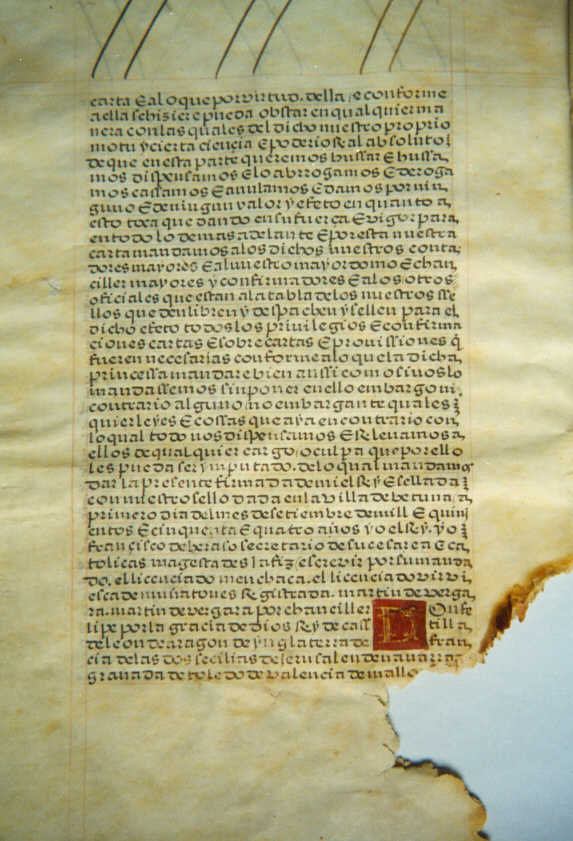 carta E a lo que por virtud. della / e conforme
a ella se hiziere pueda obstar en qual quier ma
nera con las quales del dicho nuestro proprio
motu y cierta ciencia E poderio Real absoluto /
de que en esta parte queremos hussar E hussa,
mos dispensamos E lo abrrogamos E deroga
mos cassamos E anulamos E damos por nin,
guno E de ningun valor y efeto en quanto a,
esto toca que dando en su fuerça E vigor para,
en todo lo demas a delante E por esta nuestra
carta mandamos a los dichos nuestros conta,
dores mayores E al nuestro mayordomo E chan,
ciller mayores y confirmadores E a los otros
oficiales que estan a la tabla de los nuestros sse
llos que den libren y despachen y sellen para el
dicho efeto todos los privilegios E confirma
ciones cartas E sobre cartas E provissiones q
fueren necesarias conforme a lo que la dicha,
princessa mandare bien anssi como si nos lo
mandassemos sin poner en ello embargo ni,
contrario alguno / no embargante quales q
quier leyes E cossas que aya en contrario con,
lo qual todo nos dispensamos E Relevamos a,
ellos de qual quier cargo / o culpa que por ello
les pueda ser ynputado. de lo qual mandamos
dar la presente firmada de mi el Rey E sellada
con nuestro sello dada en la villa de betun/a,
primero dia del mes de setiembre de mill E quini
entos E cinquenta E quatro años yo el Rey. yo
francisco de heraso secretario de su cesarea E ca
tolicas magestades la fiz / escrevir por su manda
do. el licenciado menchaca. el licenciado virvi
esca de muñatones Registrada. martin de verga
ra. martin de vergara por chanciller Don fe
lipe por la gracia de dios Rey de cass tilla,
de leon de aragon de ynglaterra de fran
cia de las dos secilias de jerusalen de navarra
granada de toledo de valencia de mallo